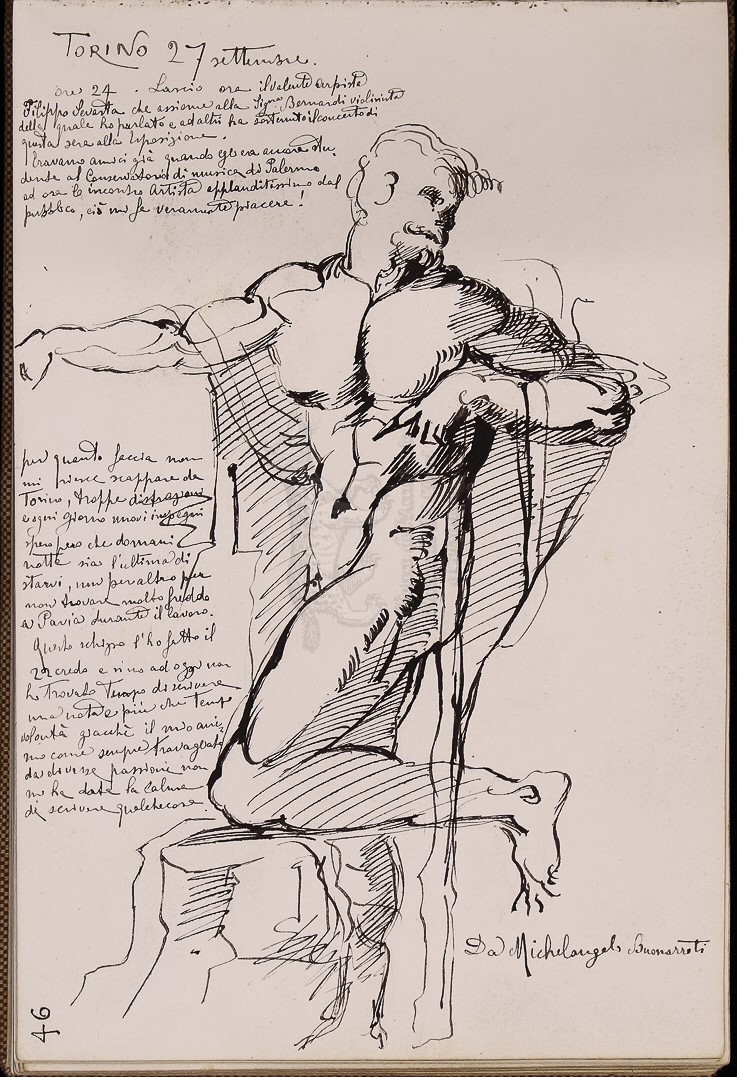 TORINO 27 settembre.
ore 24. Lascio ora il valente arpista
Filippo che assieme alla Signa Bernardi violinista
della quale ho parlato e ad altri ha sostenuto il concerto di
questa sera alla Esposizione.
Eravamo amici già quando egli era ancora stu-
dente al Conservatorio di musica di Palermo
ed ora lo incontro Artista applauditissimo dal
pubblico, ciò mi fa veramente piacere!
per quanto faccia non
mi riesce scappare da
Torino, troppe distrazioni
e ogni giorno nuovi impegni
spero però che domani
notte sia l'ultima di
starvi, non per altro per
non trovare molto freddo
a Pavia durante il lavoro.
Questo schizzo l'ho fatto il
credo e sino ad oggi non
ho trovato tempo di scrivere
una nota e più che tempo
volontà giacchè il mio ani-
mo come sempre travagliato
da diverse passioni non
mi ha dato la calma
di scrivere qualchecosa.
Da Michelangelo Buonarroti
46